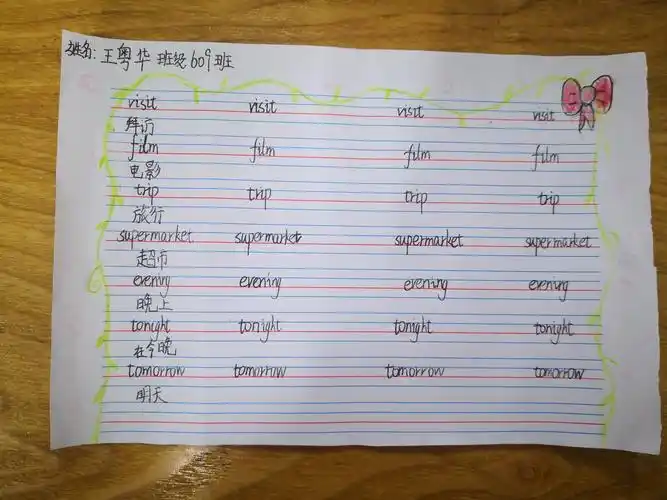 姓名:王粤华 班级609班
visit visit visit visit
拜访
film film film film
电影
trip trip trip trip
旅行
supermarket supermarket supermarket supermarket
超市
evening evening evening evening
晚上
tonight tonight tonight tonight
在今晚
tomorrow tomorrow tomorrow tomorrow
明天